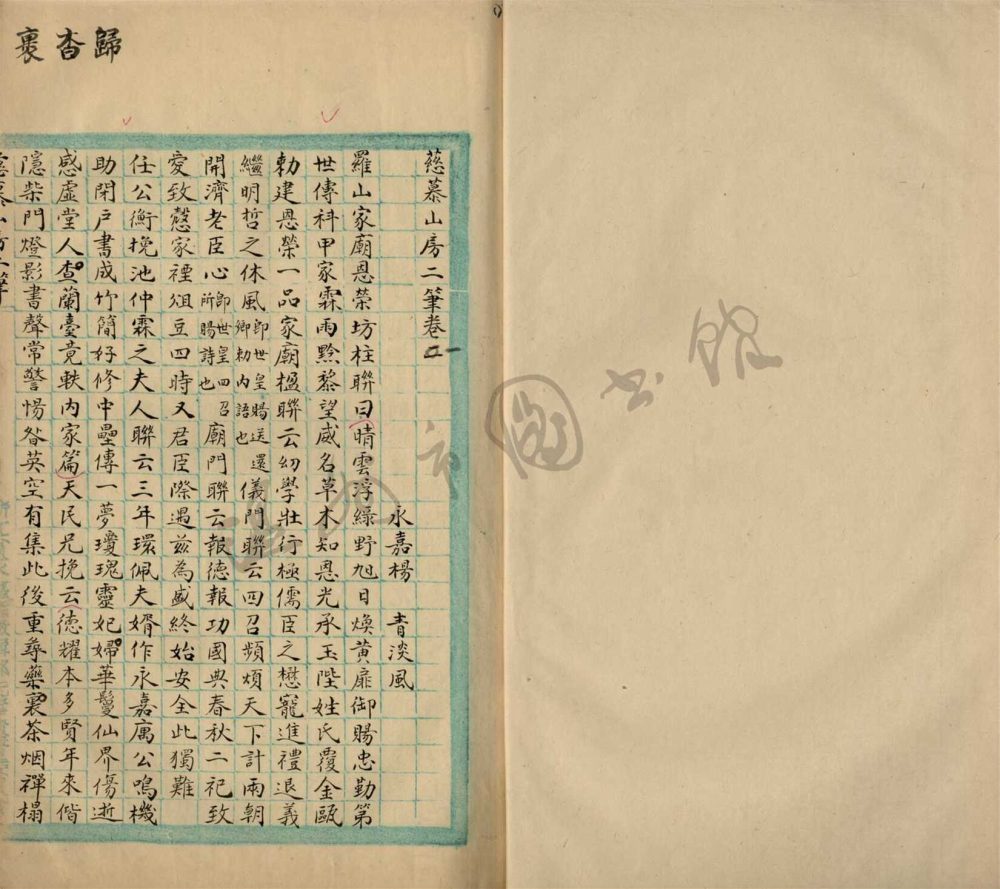 歸杳裹
慈慕山房二筆卷二
永嘉楊　青淡風
羅山家廟恩榮坊柱聯曰晴雲浮綠野旭日煥黃扉御賜忠勤第
世傳科甲家霖雨黔黎望威名草木知恩光承玉陛姓氏覆金甌
勅建恩榮一品家廟楹聯云幼學壯行極儒臣之懋寵進禮退義
繼明哲之休風即世皇賜送還卿勅內語也儀門聯云四召頻煩天下計兩朝
開濟老臣心即世皇四召所賜詩也廟門聯云報德報功國典春秋二祀致
愛致慤家禋俎豆四時又君臣際遇茲為盛終始安全此獨難
任公衡挽池仲霖之夫人聯云三年環佩夫婿作永嘉寓公鳴機
助閉戶書成竹簡好修中壘傳一夢瓊瑰靈妃婦華鬘仙界傷逝
感虛堂人查蘭臺竟軼內家篇天民兄挽云德耀本多賢年來偕
隱柴門燈影書聲常警惕昝英空有集此後重尋藥裹茶烟禪榻
圖書館